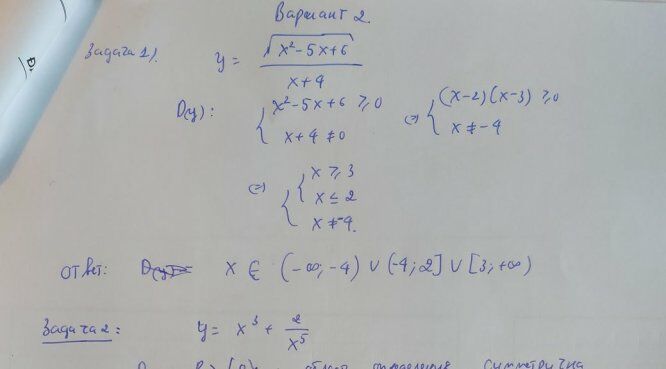 Вариант 2.
Задача 1). y = √(x² - 5x + 6) / (x + 4)
D(y): { x² - 5x + 6 ≥ 0 ; x + 4 ≠ 0 ⇔ { (x-2)(x-3) ≥ 0 ; x ≠ -4
⇔ { { x ≥ 3 ; x ≤ 2 ; x ≠ -4.
ответ: D(y) = x ∈ (-∞; -4) ∪ (-4; 2] ∪ [3; +∞)
Задача 2: y = x³ + 2/x⁵
область определения симметрична